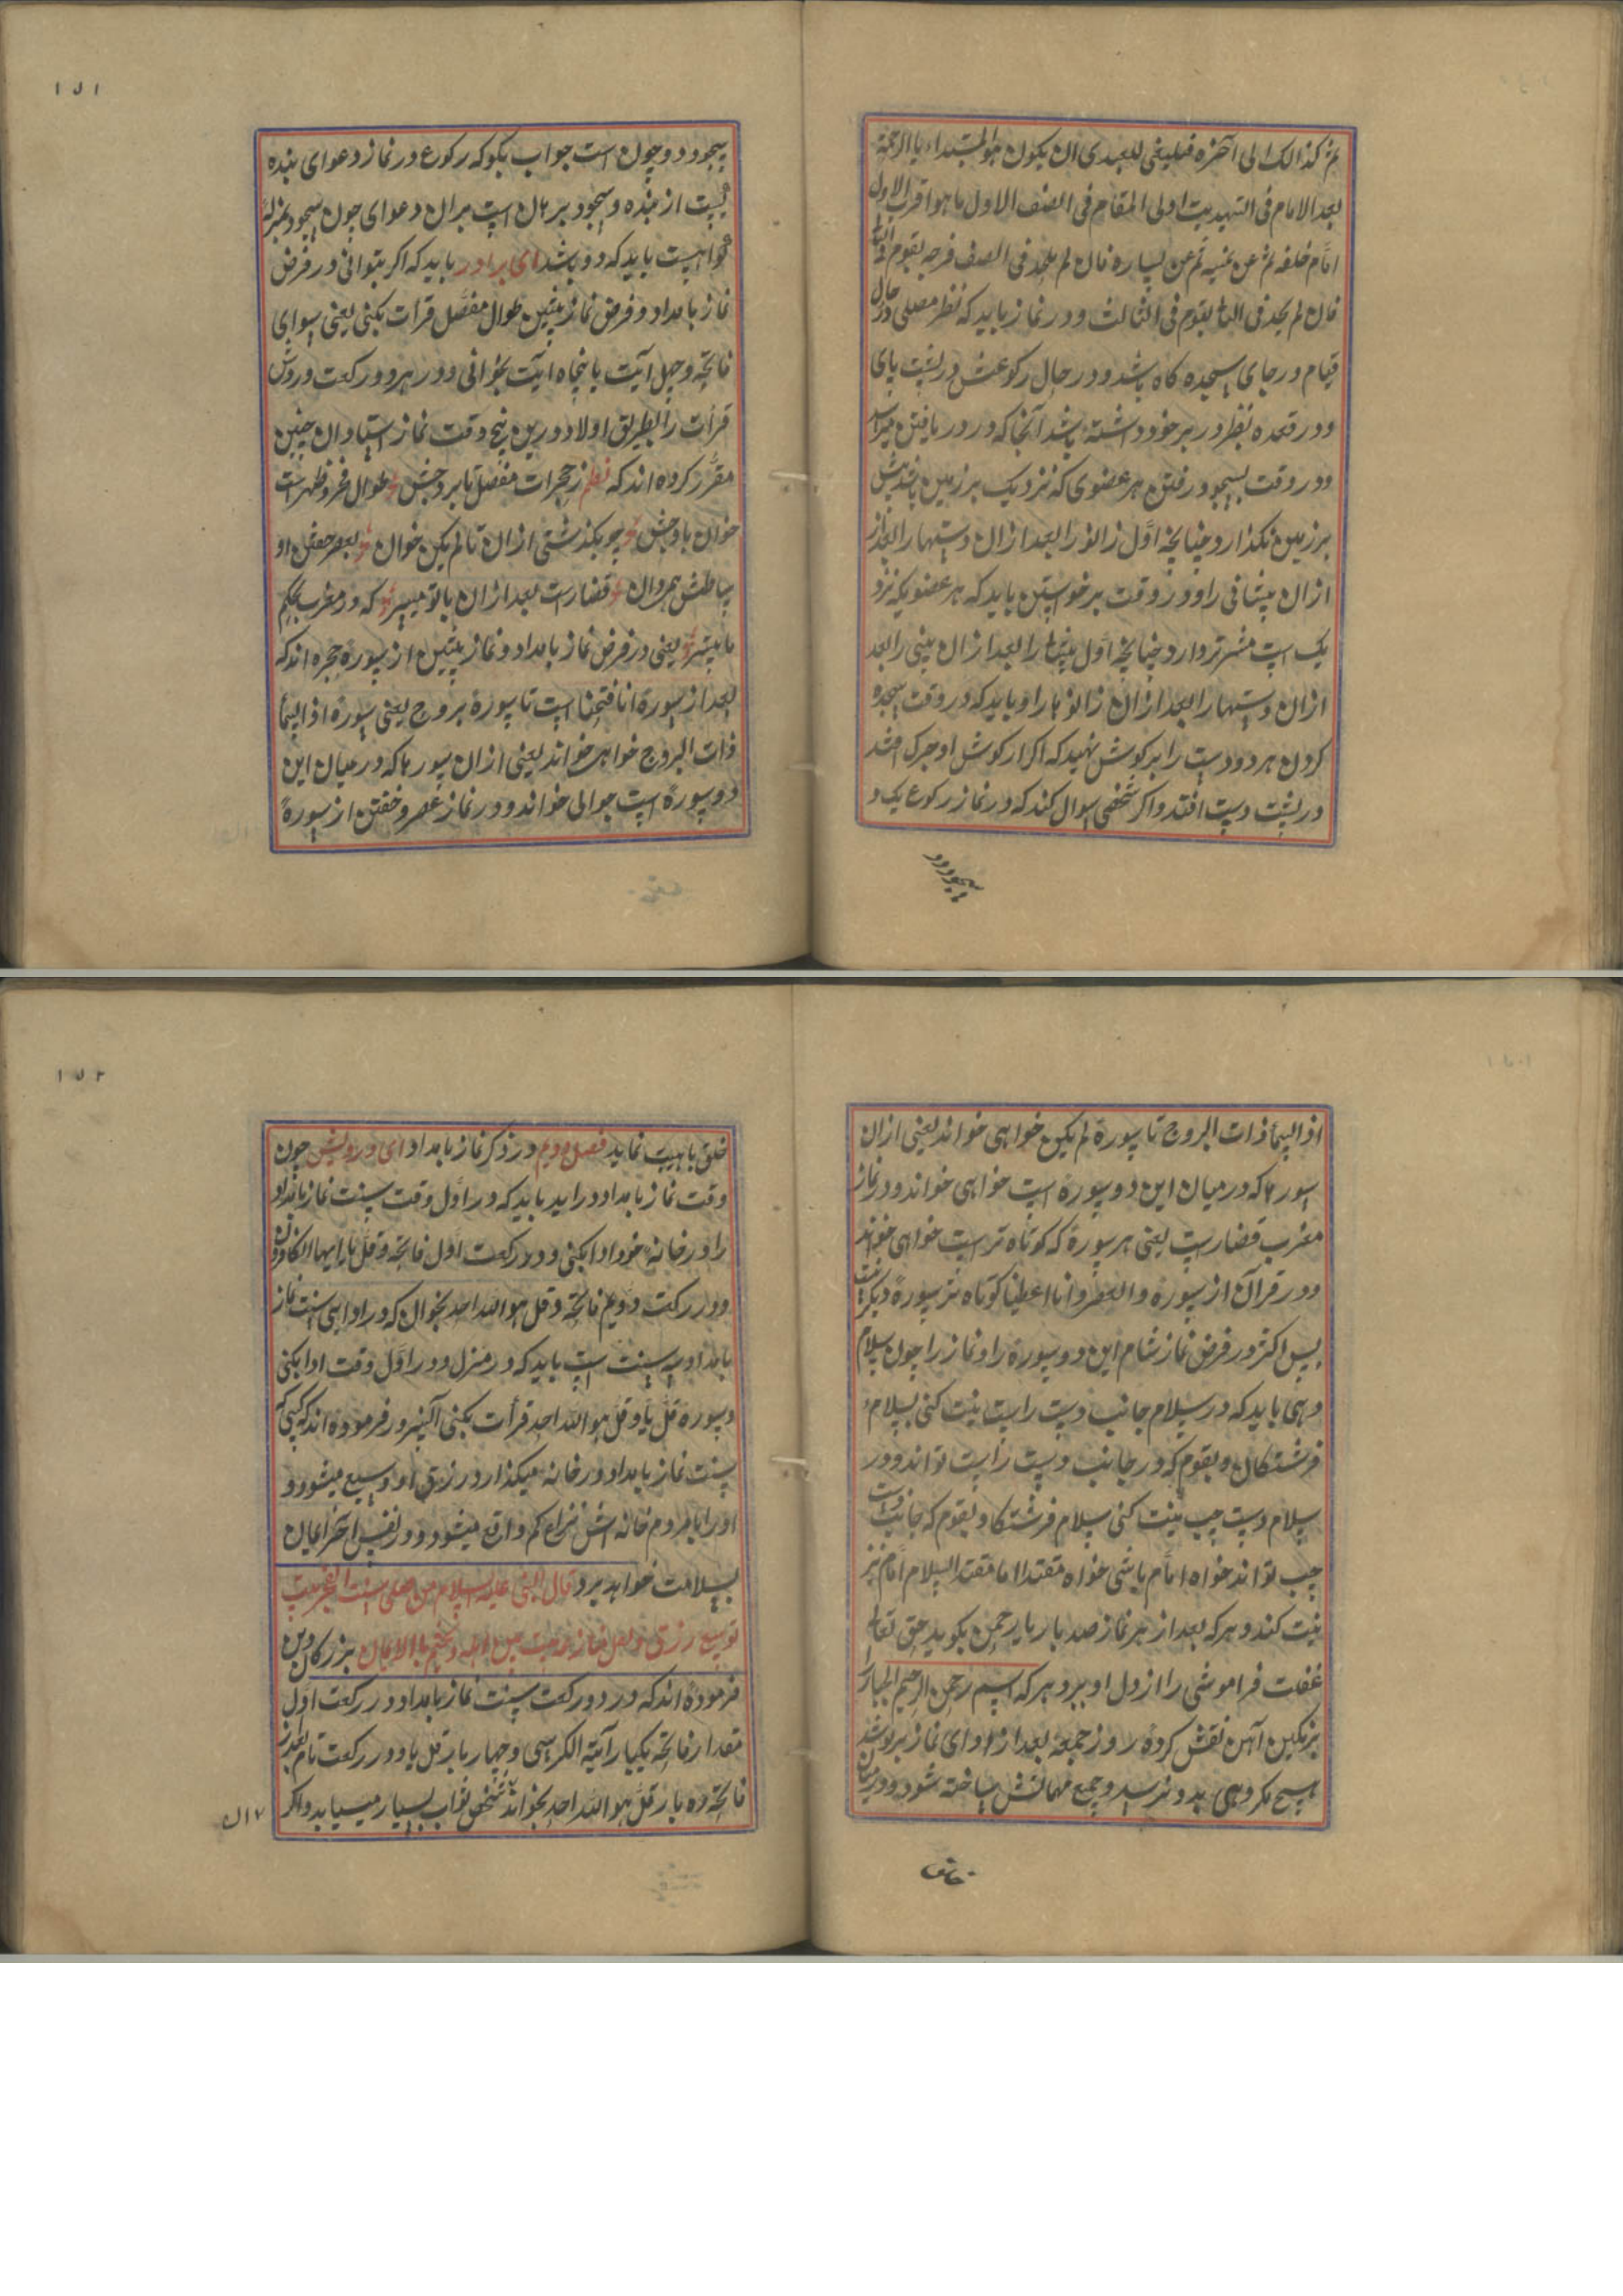 ثم كذالك الى آخره فينبغي للعبدي ان يكون هو المبتداء بالرحمة
بعد الامام فى التهيديت اولى المقام فى الصف الاول ما هو اقرب الاول
امام خلفه ثم عن يمنيه ثم عن يساره فان لم يجد فى الصف فرجه يقوم فى الثا
فان لم يجد فى الثا يقوم فى الثالث و در نماز بايد كه نظر مصلى در حال
قيام در جاى سجده كاه باشد و در حال ركوعش در پشت پاى
و در قعده نظر در بر خود داشته باشد آنجا كه در دريافتن ميرسد
و در وقت بسجود رفتن هر عضوى كه نزديك بر زمين باشد پيش
بر زمين نكذارد چنانچه اول زانو را بعد ازان دستها را بعد از
ازان پيشانى را و در وقت برخواستن بايد كه هر عضويكه نزد
يك است پيشتر دارد چنانچه اول پيشا را بعد ازان بينى را بعد
ازان دستها را بعد ازان زانو ها را و بايد كه در وقت سجده
كردن هر دو دست را بر كوش نهيد كه اكر از كوش او چرك افتد
در پشت دست افتد و اكر شخصى سوال كند كه در نماز ركوع يك و
سجود دو
۱۵۱
سجود دو چون است جواب بكو كه ركوع در نماز دعواى بنده
يست از بنده و سجود بر مان است بران دعواى چون سجود بمنزله
كواهيست بايد كه دو باشد اى برادر بايد كه اكر بتوانى در فرض
نماز بامداد و فرض نماز پيشين طوال مفصل قرات بكنى يعنى سواى
فاتحه و چهل آيت يا پنجاه آيت بخوانى و در هر دو ركعت و روش
قرأت را بطريق اولا و درين پنج وقت نماز استادان چنين
مقرر كرده اند كه نظم ز حجرات مفصل تا بروجش طوال فجر و ظهر است
خوان با وجش چو بكذشتى ازان تا لم يكن خوان بعصر خفتن او
ساطش همى دان قصارست بعد ازان با تو ميسر كه در مغرب بحكم
ما تيسر يعنى در فرض نماز بامداد و نماز پيشين از سورة حجره اند كه
بعد از سورة انا فتحنا است تا سورة بروج يعنى سورة اذا السمأ
ذات البروج خواهى خواند يعنى ازان سورها كه در ميان اين
دو سورة است حوالى خواند و در نماز عصر و خفتن از سورة
اذا السمأ ذات البروج تا سورة لم يكن خواهى خواند يعنى ازان
سورها كه در ميان اين دو سورة است خواهى خواند و در نماز
مغرب قصارست يعنى هر سورة كه كوتاه تر است خواهى خواند
و در قرآن از سورة و العصر و انا اعطينا كوتاه تر سورة ديكر نيست
پس اكثر در فرض نماز شام اين دو سورة را و نماز را چون سلام
دهى بايد كه در سلام جانب دست راست نيت كنى بسلام
فرشتكان و بقوم كه در جانب دست راست تواند و در
سلام دست چپ نيت كنى سلام فرشتكا و بقوم كه جانب دست
چپ تواند خواه امام باشى خواه مقتدا اما مقتدا السلام امام نيز
نيت كند و هر كه بعد از هر نماز صد بار يا رحمن بكويد حق تعالى
غفلت فراموشى را از دل او ببرد و هر كه اسم رحمن الرحيم الجبار را
بر نكين آهن نقش كرده روز جمعه بعد از اداى نماز بر پوشد
هيچ مكروهى بدو نرسد و جمع مهماتش ساخته شود و در ميان
خلق
۱۵۲
خلق با هيبت نمايد فصل دويم در ذكر نماز بامداد اى درويش چون
وقت نماز بامداد درايد بايد كه در اول وقت سنت نماز بامداد
را در خانه خود ادا بكنى و در ركعت اول فاتحه و قل يا ايها الكافرون
و در ركعت دويم فاتحه و قل هو الله احد بخوان كه در اداى سنت نماز
بامداد سه سنت است بايد كه در منزل و در اول وقت ادا بكنى
و سورة قل يا و قل هو الله احد قرأت بكنى آكنيز در فرموده اند كه كسى كه
سنت نماز بامداد در خانه ميكذارد رزق او وسيع ميشود و
او را با مردم خانه اش نزاع كم واقع ميشود و در نفس آخر ايمان
بسلامت خواهد برد قال النبى عليه السلام من صلى سنت الفجر فى بيت
توسيع رزق و بقل منازعه بيت من اهله و يختم بالايمان بزركان دين
فرموده اند كه در دو ركعت سنت نماز بامداد در ركعت اول
مقدار فاتحه يكبار آيته الكرسى و چهار بار قل يا و در ركعت دويم بعد از
فاتحه ده بار قل هو الله احد بخواند شخص ثواب بسيار ميبابد و اكر